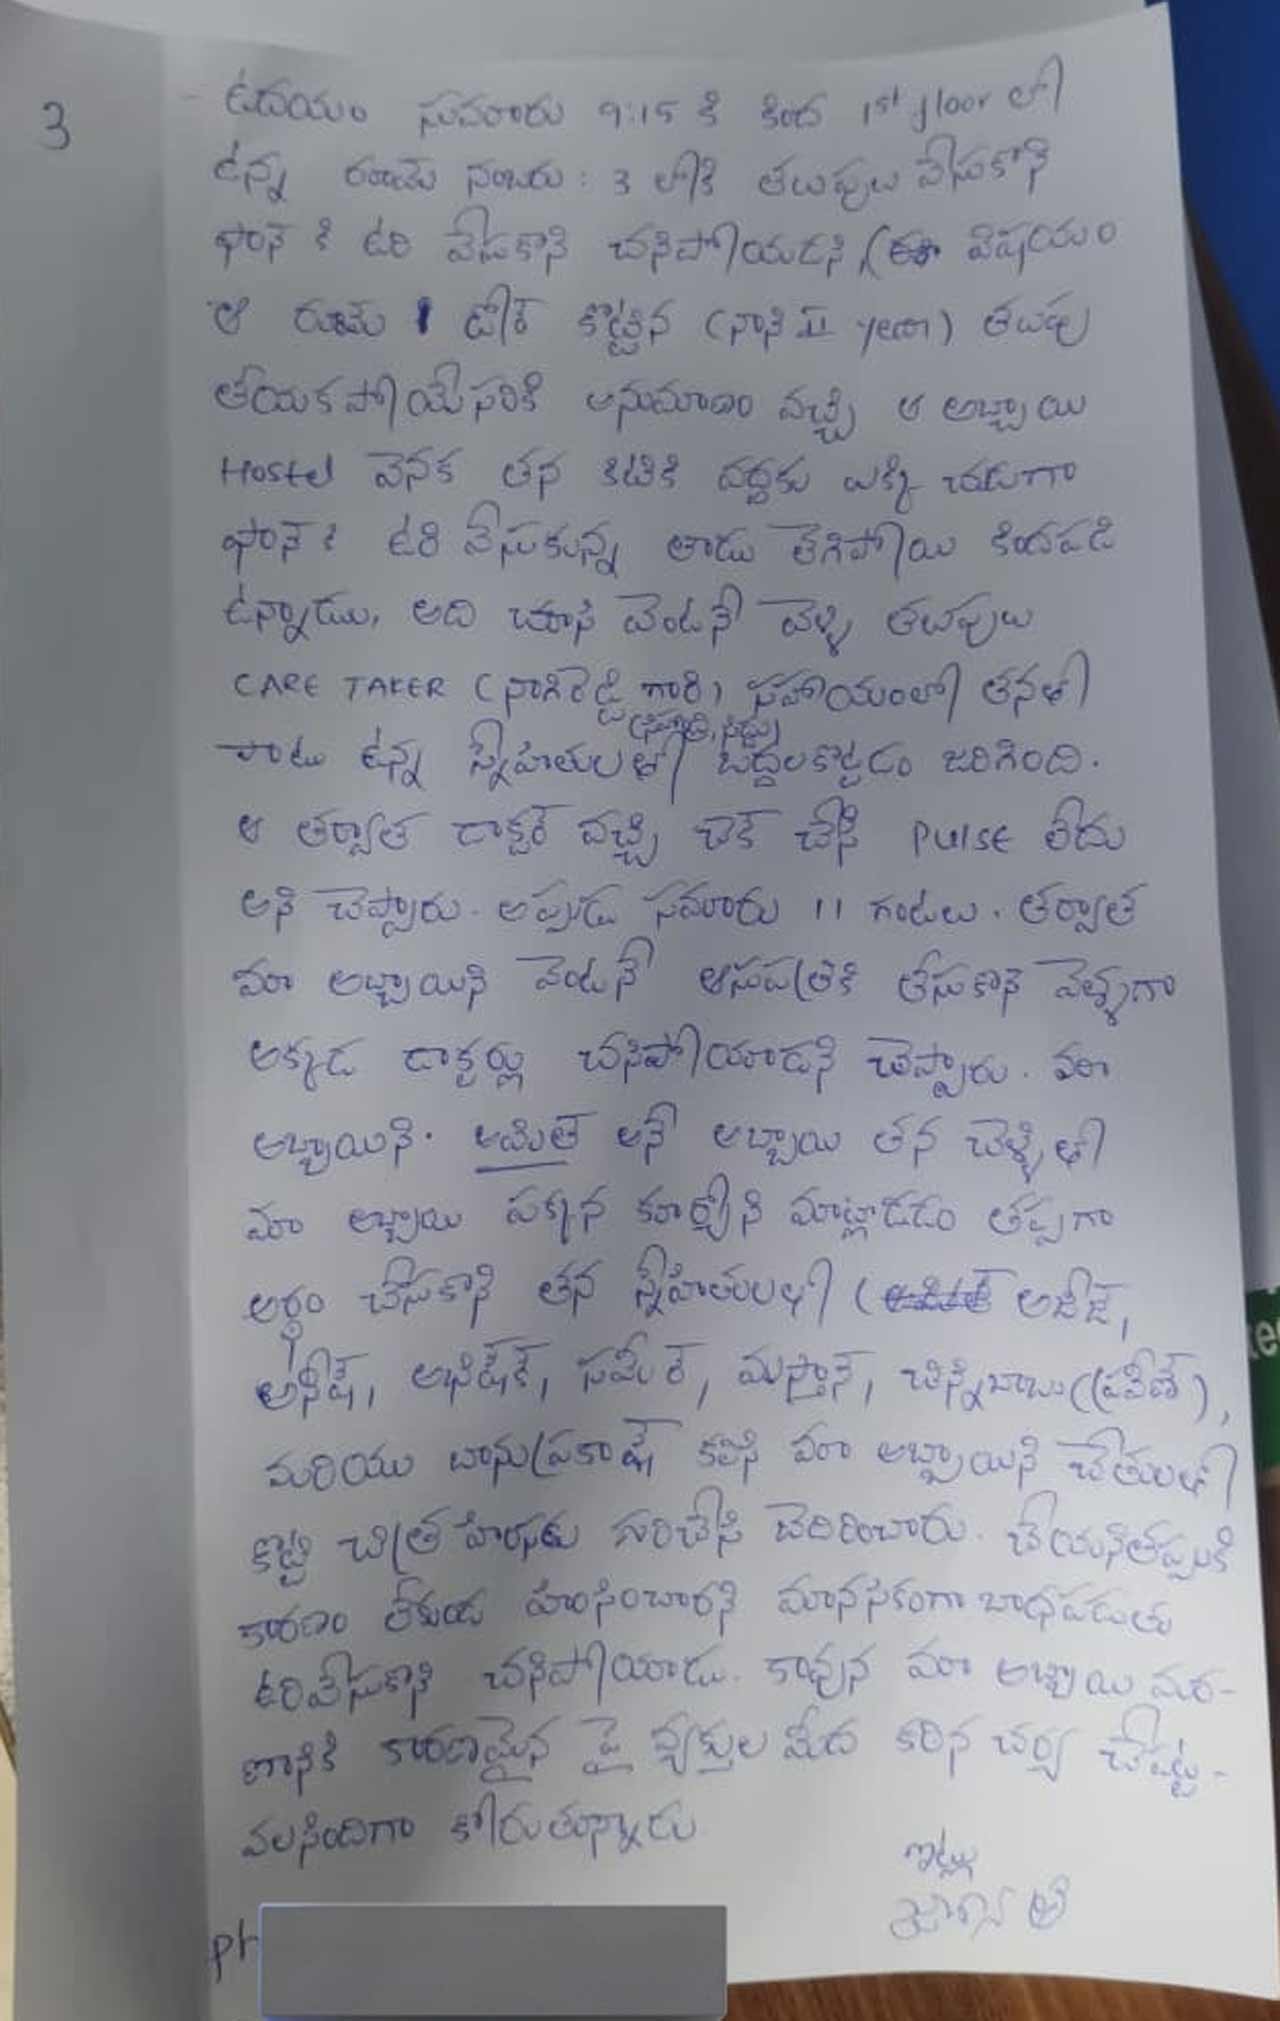 3
ఉదయం సుమారు 9:15 కి కింద 1st floor లో
ఉన్న రూమ్ నంబరు : 3 లోకి తలుపులు వేసుకొని
ఫాన్ కి ఉరి వేసుకొని చనిపోయడని, (ఈ విషయం
ఆ రూమ్ డోర్ కొట్టిన (నాని II year) తలుపు
తీయకపోయేసరికి అనుమానం వచ్చి ఆ అబ్బాయి
Hostel వెనక తన కిటికి వద్దకు ఎక్కి చూడగా
ఫాన్ కి ఉరి వేసుకున్న తాడు తెగిపోయి కిందపడి
ఉన్నాడు, అది చూసి వెంటనే వెళ్ళి తలుపులు
CARE TAKER (నాగిరెడ్డి గారి) సహాయంలో తనతో
పాటు ఉన్న స్నేహితులతో బద్దలకొట్టడం జరిగింది.
ఆ తర్వాత డాక్టర్ వచ్చి చెక్ చేసి PULSE లేదు
అని చెప్పారు. అప్పుడు సమారు 11 గంటలు. తర్వాత
మా అబ్బాయిని వెంటనే ఆసుపత్రికి తీసుకొని వెళ్ళగా
అక్కడ డాక్టర్లు చనిపోయాడని చెప్పారు. మా
అబ్బాయిని. అమిత్ అనే అబ్బాయి తన చెల్లితో
మా అబ్బాయి పక్కన కూర్చొని మాట్లాడడం తప్పగా
అర్థం చేసుకొని తన స్నేహితులతో ( అజీజ్,
అనీష్, అభిషేక్, సమీర్, మస్తాన్, చిన్నిబాబు (ప్రవీణ్),
మరియు బానుప్రకాష్ కలిసి మా అబ్బాయిని చేతులతో
కొట్టి చిత్రహింసకు గురిచేసి బెదిరించారు. చేయనితప్పుకి
కారణం లేకుండ హింసించారని మానసికంగా బాధపడుతు
ఉరివేసుకొని చనిపోయాడు. కావున మా అబ్బాయి మర-
ణానికి కారణమైన పై వ్యక్తుల మీద కఠిన చర్య చేపట్ట-
వలసిందిగా కోరుతున్నాడు
ఇట్లు
ph